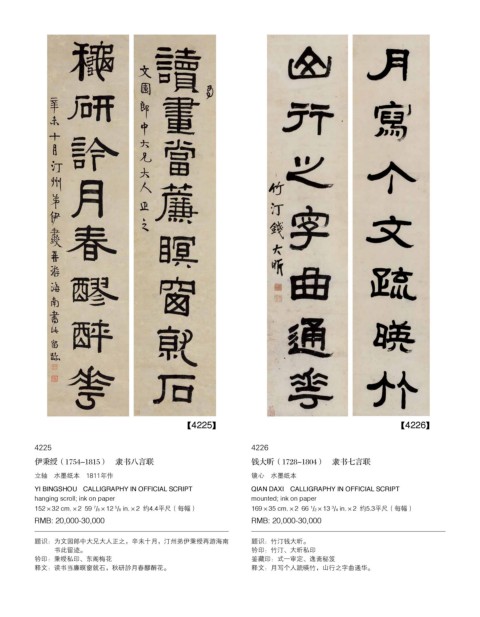 讀畫當薕瞑囪就石
文園郎中大兄大人正之
穐研訡月春醪醉蕐
辛未十月汀州弟伊秉綬再游海南書此留跡
月寫个文疏映竹
山行之字曲通華
竹汀錢大昕
【4225】
【4226】
4225
伊秉绶（1754–1815） 隶书八言联
立轴 水墨纸本 1811年作
YI BINGSHOU CALLIGRAPHY IN OFFICIAL SCRIPT
hanging scroll; ink on paper
152×32 cm.×2 59 ⁷/₈×12 ⁵/₈ in.×2 约4.4平尺（每幅）
RMB: 20,000-30,000
题识：为文园郎中大兄大人正之，辛未十月，汀州弟伊秉绶再游海南
书此留迹。
钤印：秉绶私印、东阁梅花
释文：读书当廉瞑窗就石，秋研訡月春醪醉花。
4226
钱大昕（1728–1804） 隶书七言联
镜心 水墨纸本
QIAN DAXI CALLIGRAPHY IN OFFICIAL SCRIPT
mounted; ink on paper
169×35 cm.×2 66 ¹/₂×13 ³/₄ in.×2 约5.3平尺（每幅）
RMB: 20,000-30,000
题识：竹汀钱大昕。
钤印：竹汀、大昕私印
鉴藏印：式一审定、逸斋秘笈
释文：月写个人疏映竹，山行之字曲通华。